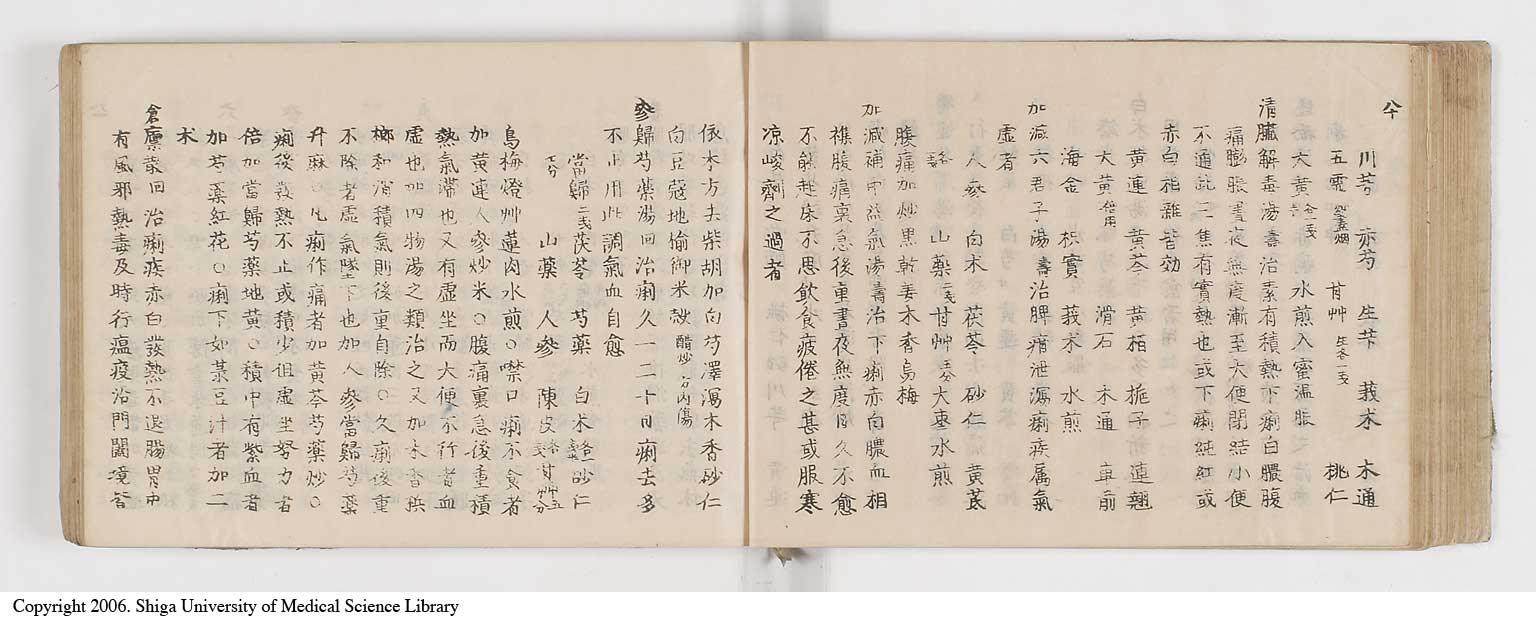 川芎 赤芍 生芐 莪朮 木通
五靈 甘艸 生各一戔 桃仁
大黃 水煎入蜜温服
清臟解毒湯 壽 治素有積熱下痢白膿腹
痛膨脹晝夜無度漸至大便閉結小便
不通此三焦有實熱也或下痢純紅或
赤白相雜皆効
黃連 黃芩 黃栢 梔子 連翹
大黃 倍用 滑石 木通 車前
海金 枳實 莪朮 水煎
加減六君子湯 壽 治脾瘄泄瀉痢疾属氣
虛者
人參 白朮 茯苓 砂仁 黃芪
山藥 二戔 甘艸 五分 大棗水煎
腹痛加炒黑乾姜木香烏梅
加減補中益氣湯 壽 治下痢赤白膿血相
襍腹痛裏急後重晝夜無度日久不愈
不能起床不思飲食疲倦之甚或服寒
凉峻劑之過者
依本方去柴胡加白芍澤瀉木香砂仁
白豆蔻地榆御米殼 醋炒
參歸芍藥湯 回 治痢久一二十日痢去多
不止用此調氣血自愈
當歸 二戔 茯苓 芍藥 白朮 砂仁
七分 山藥 人參 陳皮 甘艸 五分
烏梅燈艸蓮肉水煎○噤口痢不食者
加黃連人參炒米○腹痛裏急後重積
熱氣滯也又有虛坐而大便不行者血
虛也加四物湯之類治之又加木香梹
榔和滑積氣則後重自除○久痢後重
不除者虛氣墜下也加人參當歸芍藥
升麻○凡痢作痛者加黃芩芍藥炒○
痢後發熱不止或積少但虛坐努力者
倍加當歸芍藥地黃○積中有紫血者
加芍藥紅花○痢下如菉豆汁者加二
朮
倉廩散 回 治痢疾赤白發熱不退腸胃中
有風邪熱毒及時行瘟疫沿門闔境皆
Copyright 2006. Shiga University of Medical Science Library